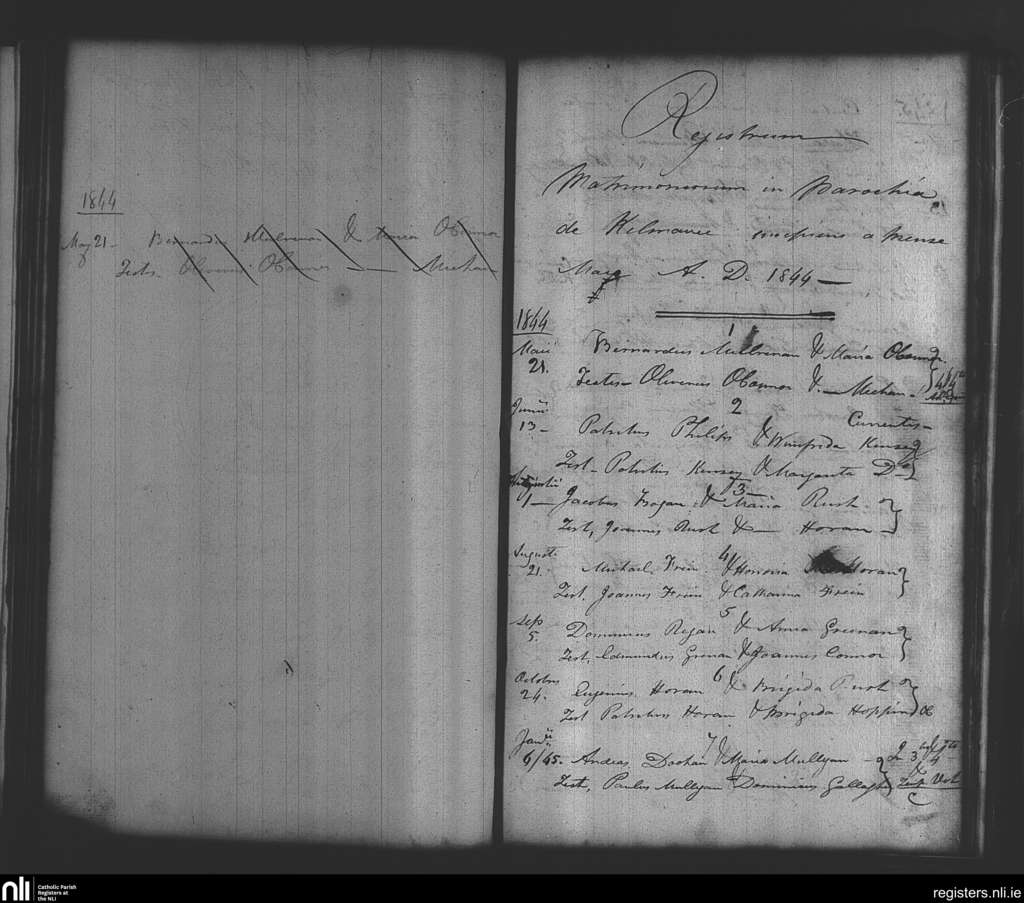 1844
May 21 — Bernardus Mulrenan & Maria OConnor
Testes Oliverus OConnor — Meehan
Registrum
Matrimoniorum in Parochia
de Kilmavee incipiens a mense
Maii A. D. 1844 —
1844
1
Maii 21. Bernardus Mullrenan & Maria OConnor
Testes — Oliverus OConnor & — Meehan
2
Junii 13 — Patritius Philips & Winifrida Kensey
Test — Patritius Kensey & Margarita Do
3
1 — Jacobus Hogan & Maria Rush
Test, Joannes Rush & — Horan
4
Augusti 21. Michael Frein & Honoria Horan
Test. Joannes Frein & Catharina Frein
5
Sep 5. Dominicus Regan & Anna Greenan
Test, Edmundus Grenan & Joannes Connor
6
Octobris 24. Eugenius Horan & Brigida Rush
Test Patritius Horan & Brigida Hopkins
7
Janii 6/45. Andreas Doohan & Maria Mullgan
Test, Paulus Mullgan Dominicus Gallagher
nli Catholic Parish
Registers at
the NLI
registers.nli.ie